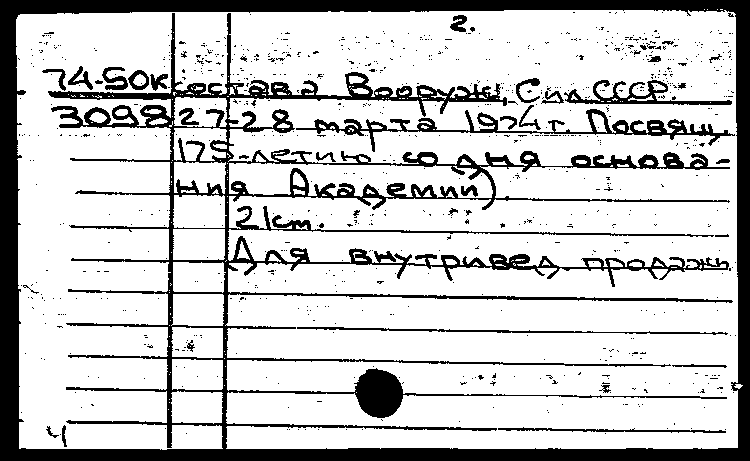 2.
74-50к состава Вооруж. Сил СССР.
3098 27-28 марта 1974 г. Посвящ.
175-летию со дня основа-
ния Академии).
21 ст.
Для внутривед. продажи
4